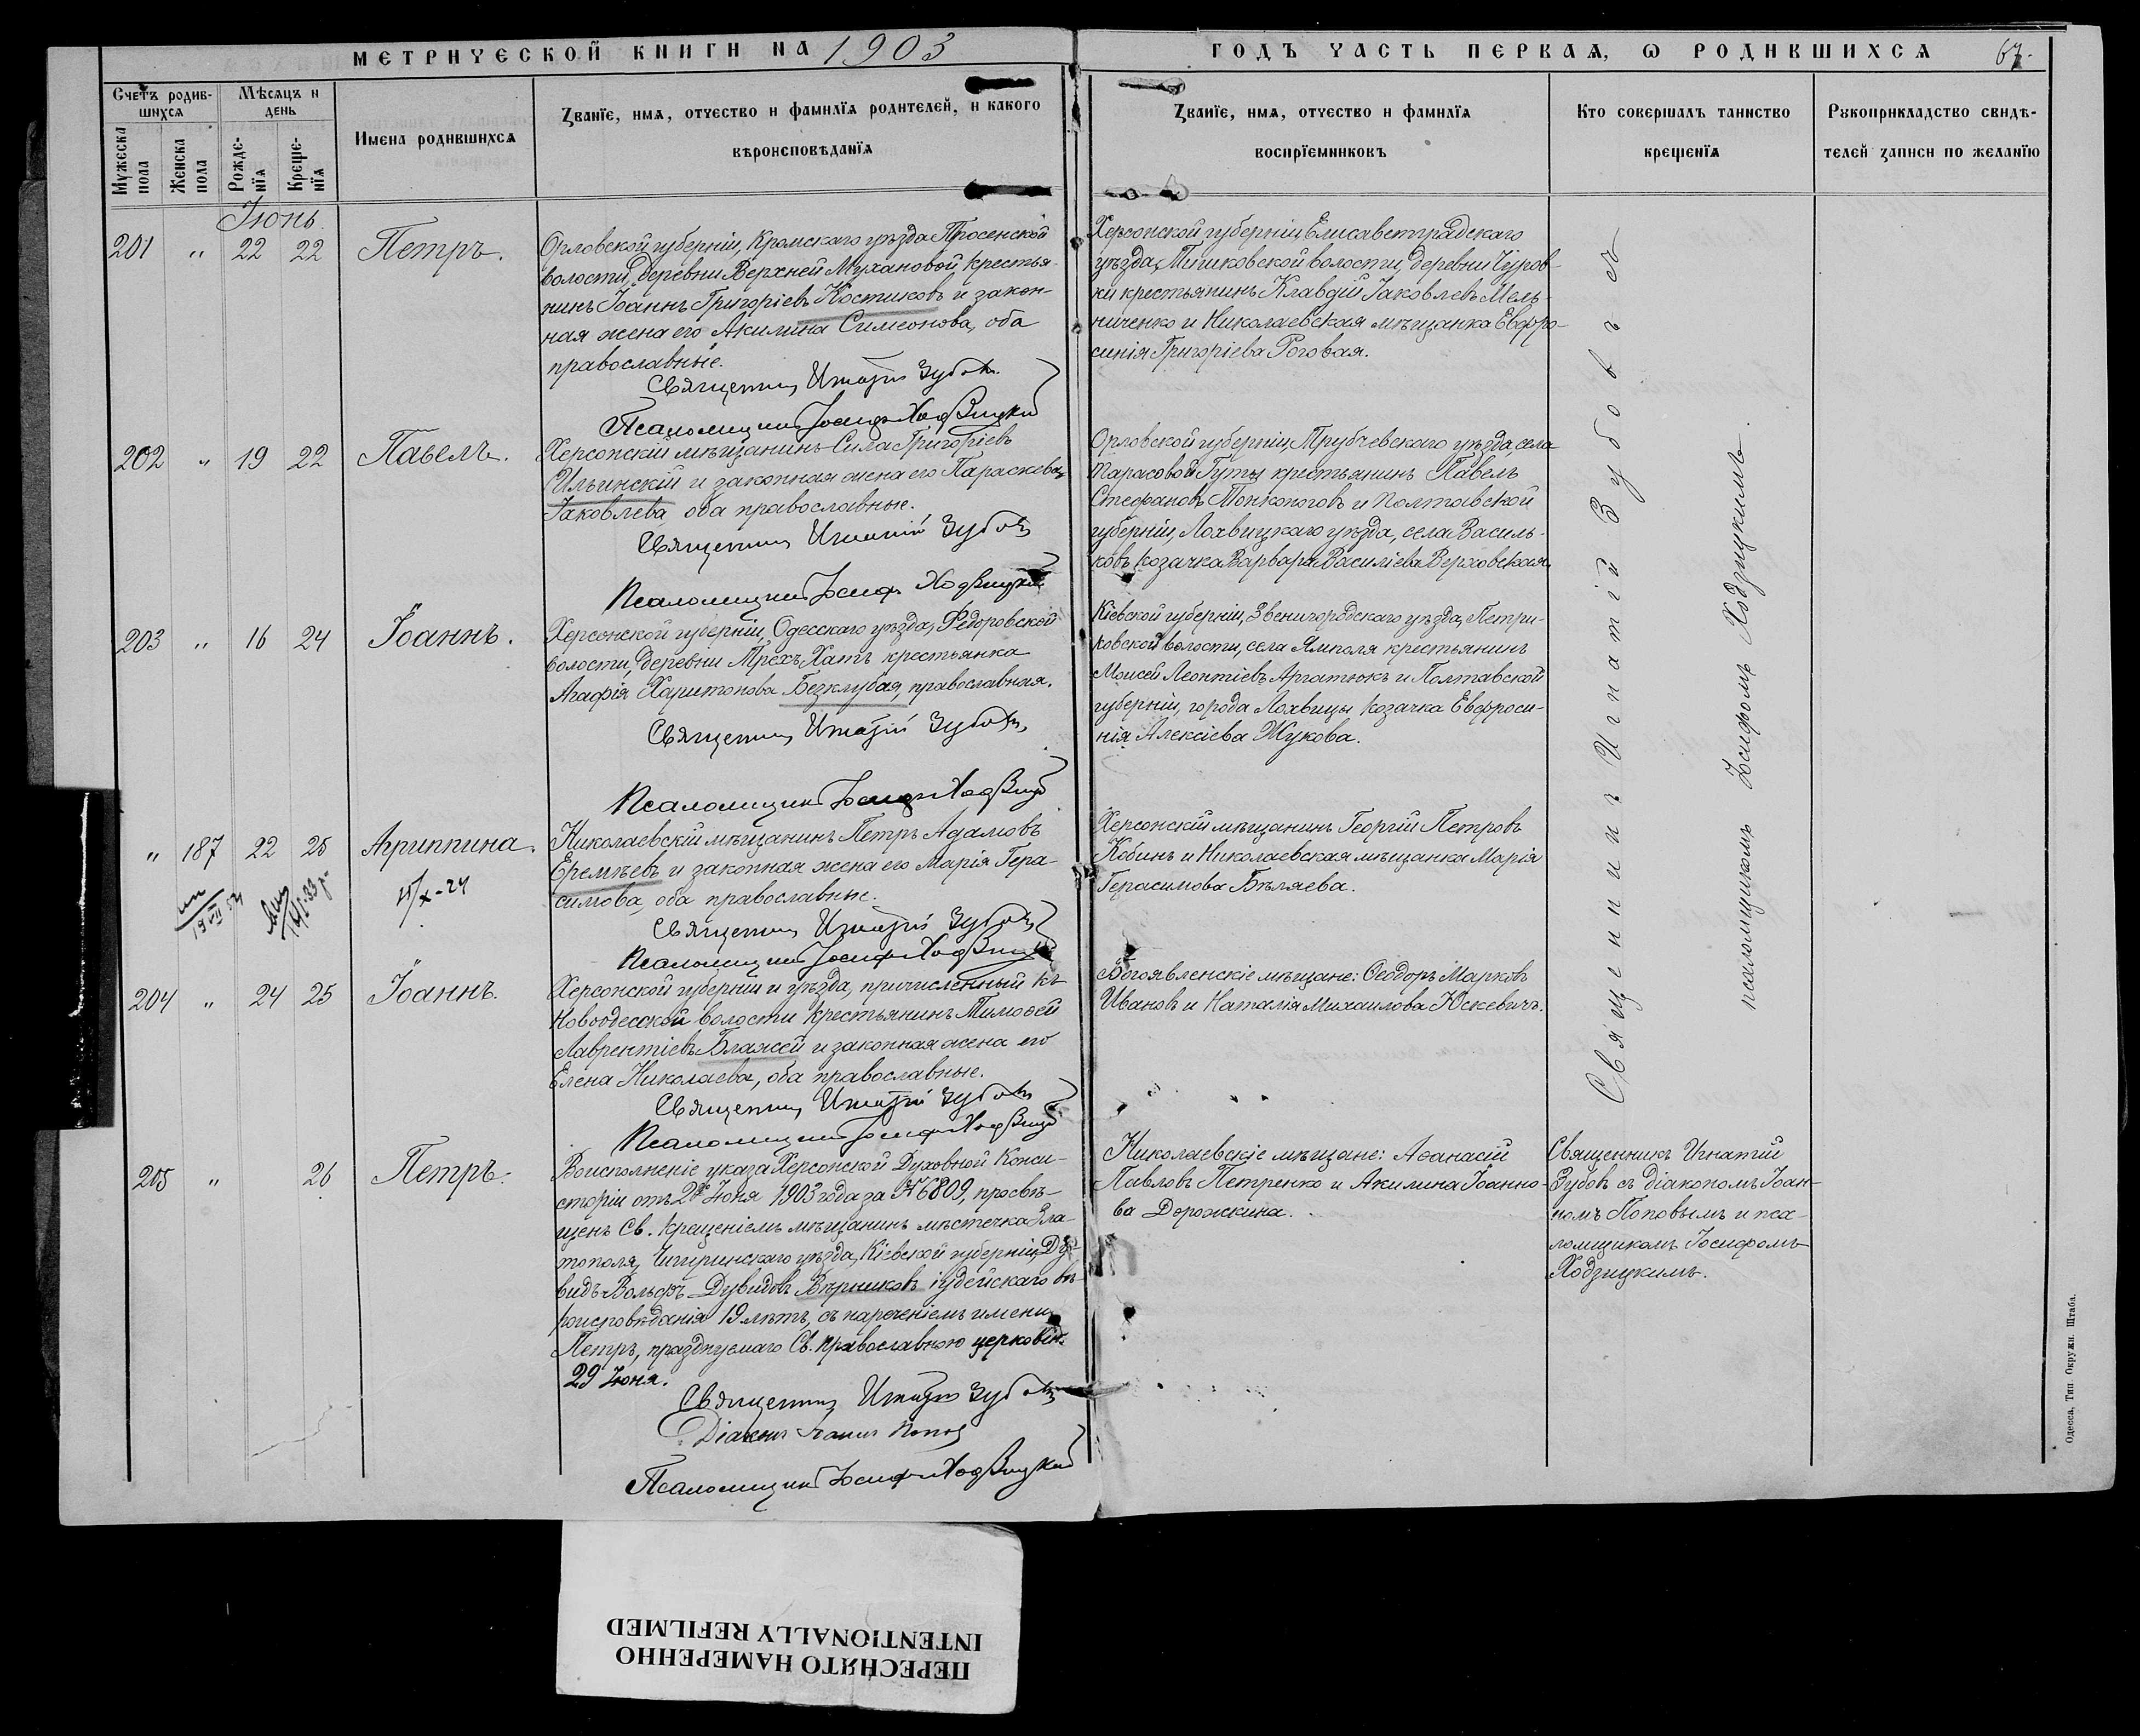 МЕТРИЧЕСКОЙ КНИГИ НА 1903
ГОДЪ ЧАСТЬ ПЕРВАЯ, Ѡ РОДИВШИХСЯ 67.
Счетъ родив-
шихся
Мѣсяцъ и
день
Мужеска
пола
Женска
пола
Рожде-
нїя
Креще-
нїя
Имена родившихся
Званїе, имя, отчество и фамилїя родителей, и какого
вѣроисповѣданїя
Званїе, имя, отчество и фамилїя
воспрїемниковъ
Кто совершалъ таинство
крещенїя
Рукоприкладство свидѣ-
телей записи по желанїю
Іюнь.
201 " 22 22 Петръ.
Орловской губерніи, Кромскаго уѣзда Тросенской
волости, деревни Верхней Мухановой крестья-
нинъ Іоаннъ Григоріевъ Костиковъ и закон-
ная жена его Акилина Симеонова, оба
православные.
Священникъ Игнатій Зубовъ
Псаломщикъ Іосифъ Ходзицкій
Херсонской губерніи, Елисаветградскаго
уѣзда, волости, деревни Чуров-
ки крестьянинъ Клавдій Іаковлевъ Мель-
ниченко и Николаевская мѣщанка Евфро-
синія Григоріева Роговая.
202 " 19 22 Павелъ.
Херсонскій мѣщанинъ Сила Григоріевъ
Ильинскій и законная жена его Параскева
Іаковлева, оба православные.
Священникъ Игнатій Зубовъ
Псаломщикъ Іосифъ Ходзицкій
Орловской губерніи, Трубчевскаго уѣзда, села
Тарасовой Гуты крестьянинъ Павелъ
Стефановъ Тонконоговъ и Полтавской
губерніи, Лохвицкаго уѣзда, села Василь-
ковъ козачка Варвара Василіева Верховская.
203 " 16 24 Іоаннъ.
Херсонской губерніи, Одесскаго уѣзда, Федоровской
волости, деревни Трехъ Хатъ крестьянка
Агафія Харитонова Безклубая, православная.
Священникъ Игнатій Зубовъ
Псаломщикъ Іосифъ Ходзицкій
Кіевской губерніи, Звенигородскаго уѣзда, Петри-
ковской волости, села Ямполя крестьянинъ
Моисей Леонтіевъ Аргатюкъ и Полтавской
губерніи, города Лохвицы козачка Евфроси-
нія Алексіева Жукова.
" 187 22 25 Агриппина.
Николаевскій мѣщанинъ Петръ Адамовъ
Еремѣевъ и законная жена его Марія Гера-
симова, оба православные.
Священникъ Игнатій Зубовъ
Псаломщикъ Іосифъ Ходзицкій
Херсонскій мѣщанинъ Георгій Петровъ
Кобинъ и Николаевская мѣщанка Марія
Герасимова Бѣляева.
204 " 24 25 Іоаннъ.
Херсонской губерніи и уѣзда, причисленный къ
Новоодесской волости крестьянинъ Тимоѳей
Лаврентіевъ Блажей и законная жена его
Елена Николаева, оба православные.
Священникъ Игнатій Зубовъ
Псаломщикъ Іосифъ Ходзицкій
Богоявленскіе мѣщане: Ѳеодоръ Марковъ
Ивановъ и Наталія Михаилова Юскевичъ.
Священникъ Игнатій Зубовъ съ
псаломщикомъ Іосифомъ Ходзицкимъ.
205 " 26 Петръ.
Воисполненіе указа Херсонской Духовной Конси-
сторіи отъ Іюня 1903 года за № 6809, просвѣ-
щенъ Св. Крещеніемъ мѣщанинъ мѣстечка Зла-
тополя, Чигиринскаго уѣзда, Кіевской губерніи, Ду-
видъ-Вольфъ Дувидовъ Вѣрниковъ іудейскаго вѣ-
роисповѣданія 19 лѣтъ, съ нареченіемъ имени
Петръ, празднуемаго Св. православною церковію
29 Іюня.
Священникъ Игнатій Зубовъ
Діаконъ Іоаннъ Поповъ
Псаломщикъ Іосифъ Ходзицкій
Николаевскіе мѣщане: Аѳанасій
Павловъ Петренко и Акилина Іоанно-
ва Дорожкина.
Священникъ Игнатій
Зубовъ съ діакономъ Іоан-
номъ Поповымъ и пса-
ломщикомъ Іосифомъ
Ходзицкимъ.
Одесса, Тип. Окружн. Штаба.
ПЕРЕСНЯТО НАМЕРЕННО
INTENTIONALLY REFILMED